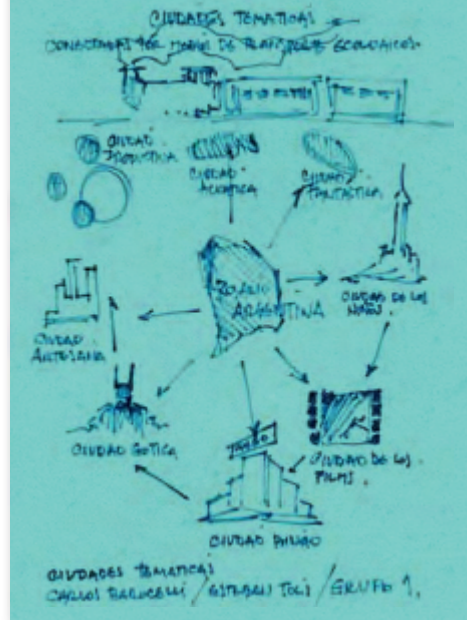 CIUDADES TEMATICAS
CONECTADAS POR MEDIO DE TRANSPORTE ECOLOGICOS.
CIUDAD PRODUCTIVA
CIUDAD ACUATICA
CIUDAD FANTASTICA
ARGENTINA
CIUDAD DE LOS NIÑOS
CIUDAD ARTESANA
CIUDAD GOTICA
TANGO
CIUDAD DE LOS FILMS.
CIUDAD
CIUDADES TEMATICAS
CARLOS / ESTEBAN / GRUPO 1.